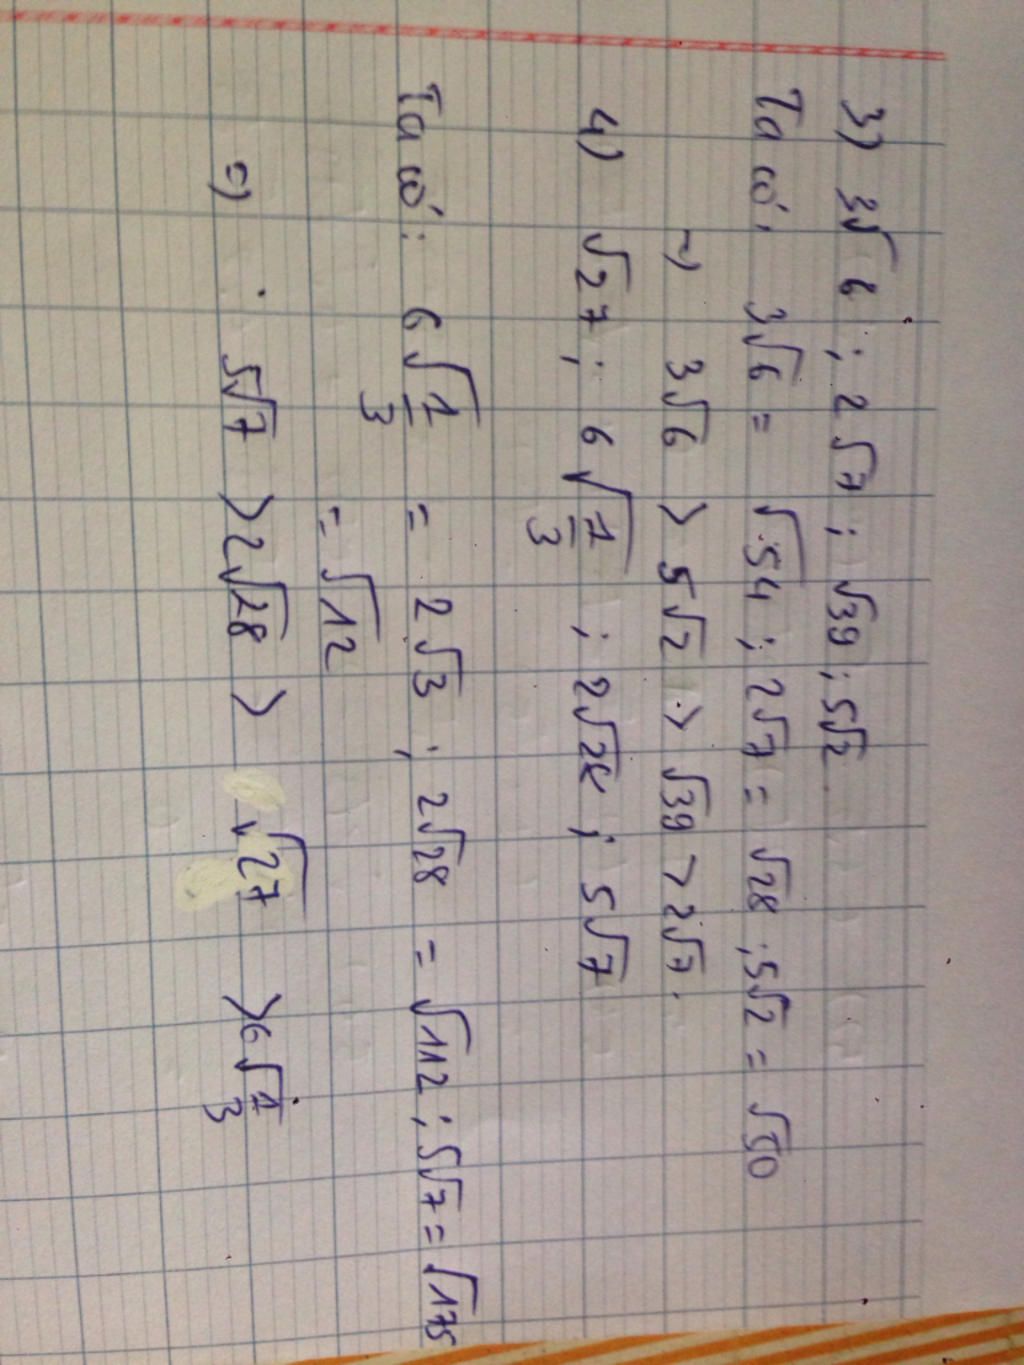 3) 3√6 ; 2√7 ; √39 ; 5√2
Ta có: 3√6 = √54 ; 2√7 = √28 ; 5√2 = √50
=) 3√6 > 5√2 > √39 > 2√7.
4) √27 ; 6√1/3 ; 2√28 ; 5√7
Ta có: 6√1/3 = 2√3 ; 2√28 = √112 ; 5√7 = √175
= √12
=) 5√7 > 2√28 > √27 > 6√1/3